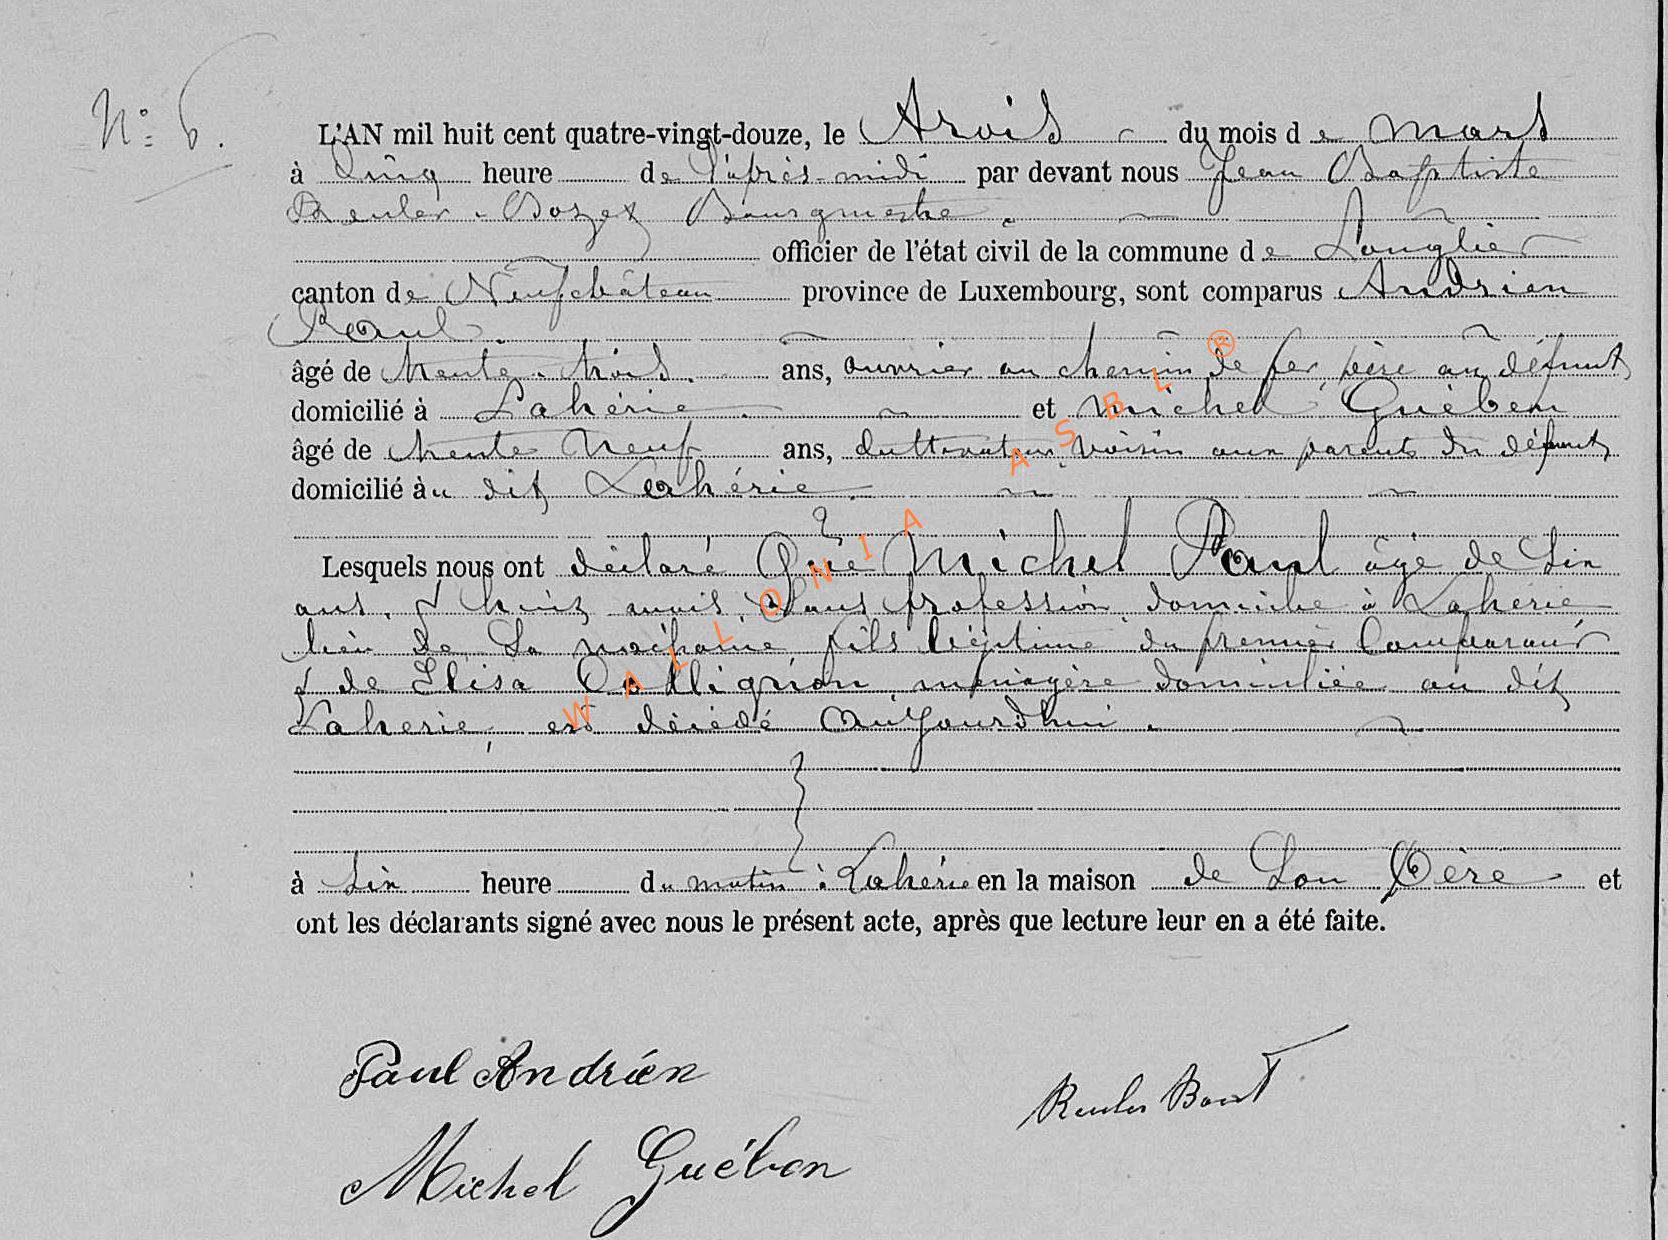 N° 6.
L'AN mil huit cent quatre-vingt-douze, le trois du mois de mars
à cinq heure de l'après-midi par devant nous Jean Baptiste
Reuler-Bozet Bourgmestre
officier de l'état civil de la commune de Longlier
canton de Neufchâteau province de Luxembourg, sont comparus Andrien
Paul.
âgé de trente-trois. ans, ouvrier au chemin de fer, père au défunt
domicilié à Lahérie. et michel Guèben
âgé de trente neuf ans, cultivateur, voisin aux parents du défunt
domicilié au dit Lahérie.
Lesquels nous ont déclaré Que Michel Paul âgé de six
ans, & huit mois, sans profession, domicilié à Laherie
lieu de sa naissance fils légitime du premier Comparant
& de Elisa Collignon, ménagère domiciliée au dit
Laherie, est décédé aujourdhui.
à six heure du matin à Lahérie en la maison de son Père et
ont les déclarants signé avec nous le présent acte, après que lecture leur en a été faite.
Paul Andrién
Reuler Bozet
Michel Guében
WALLONIA ASBL ®